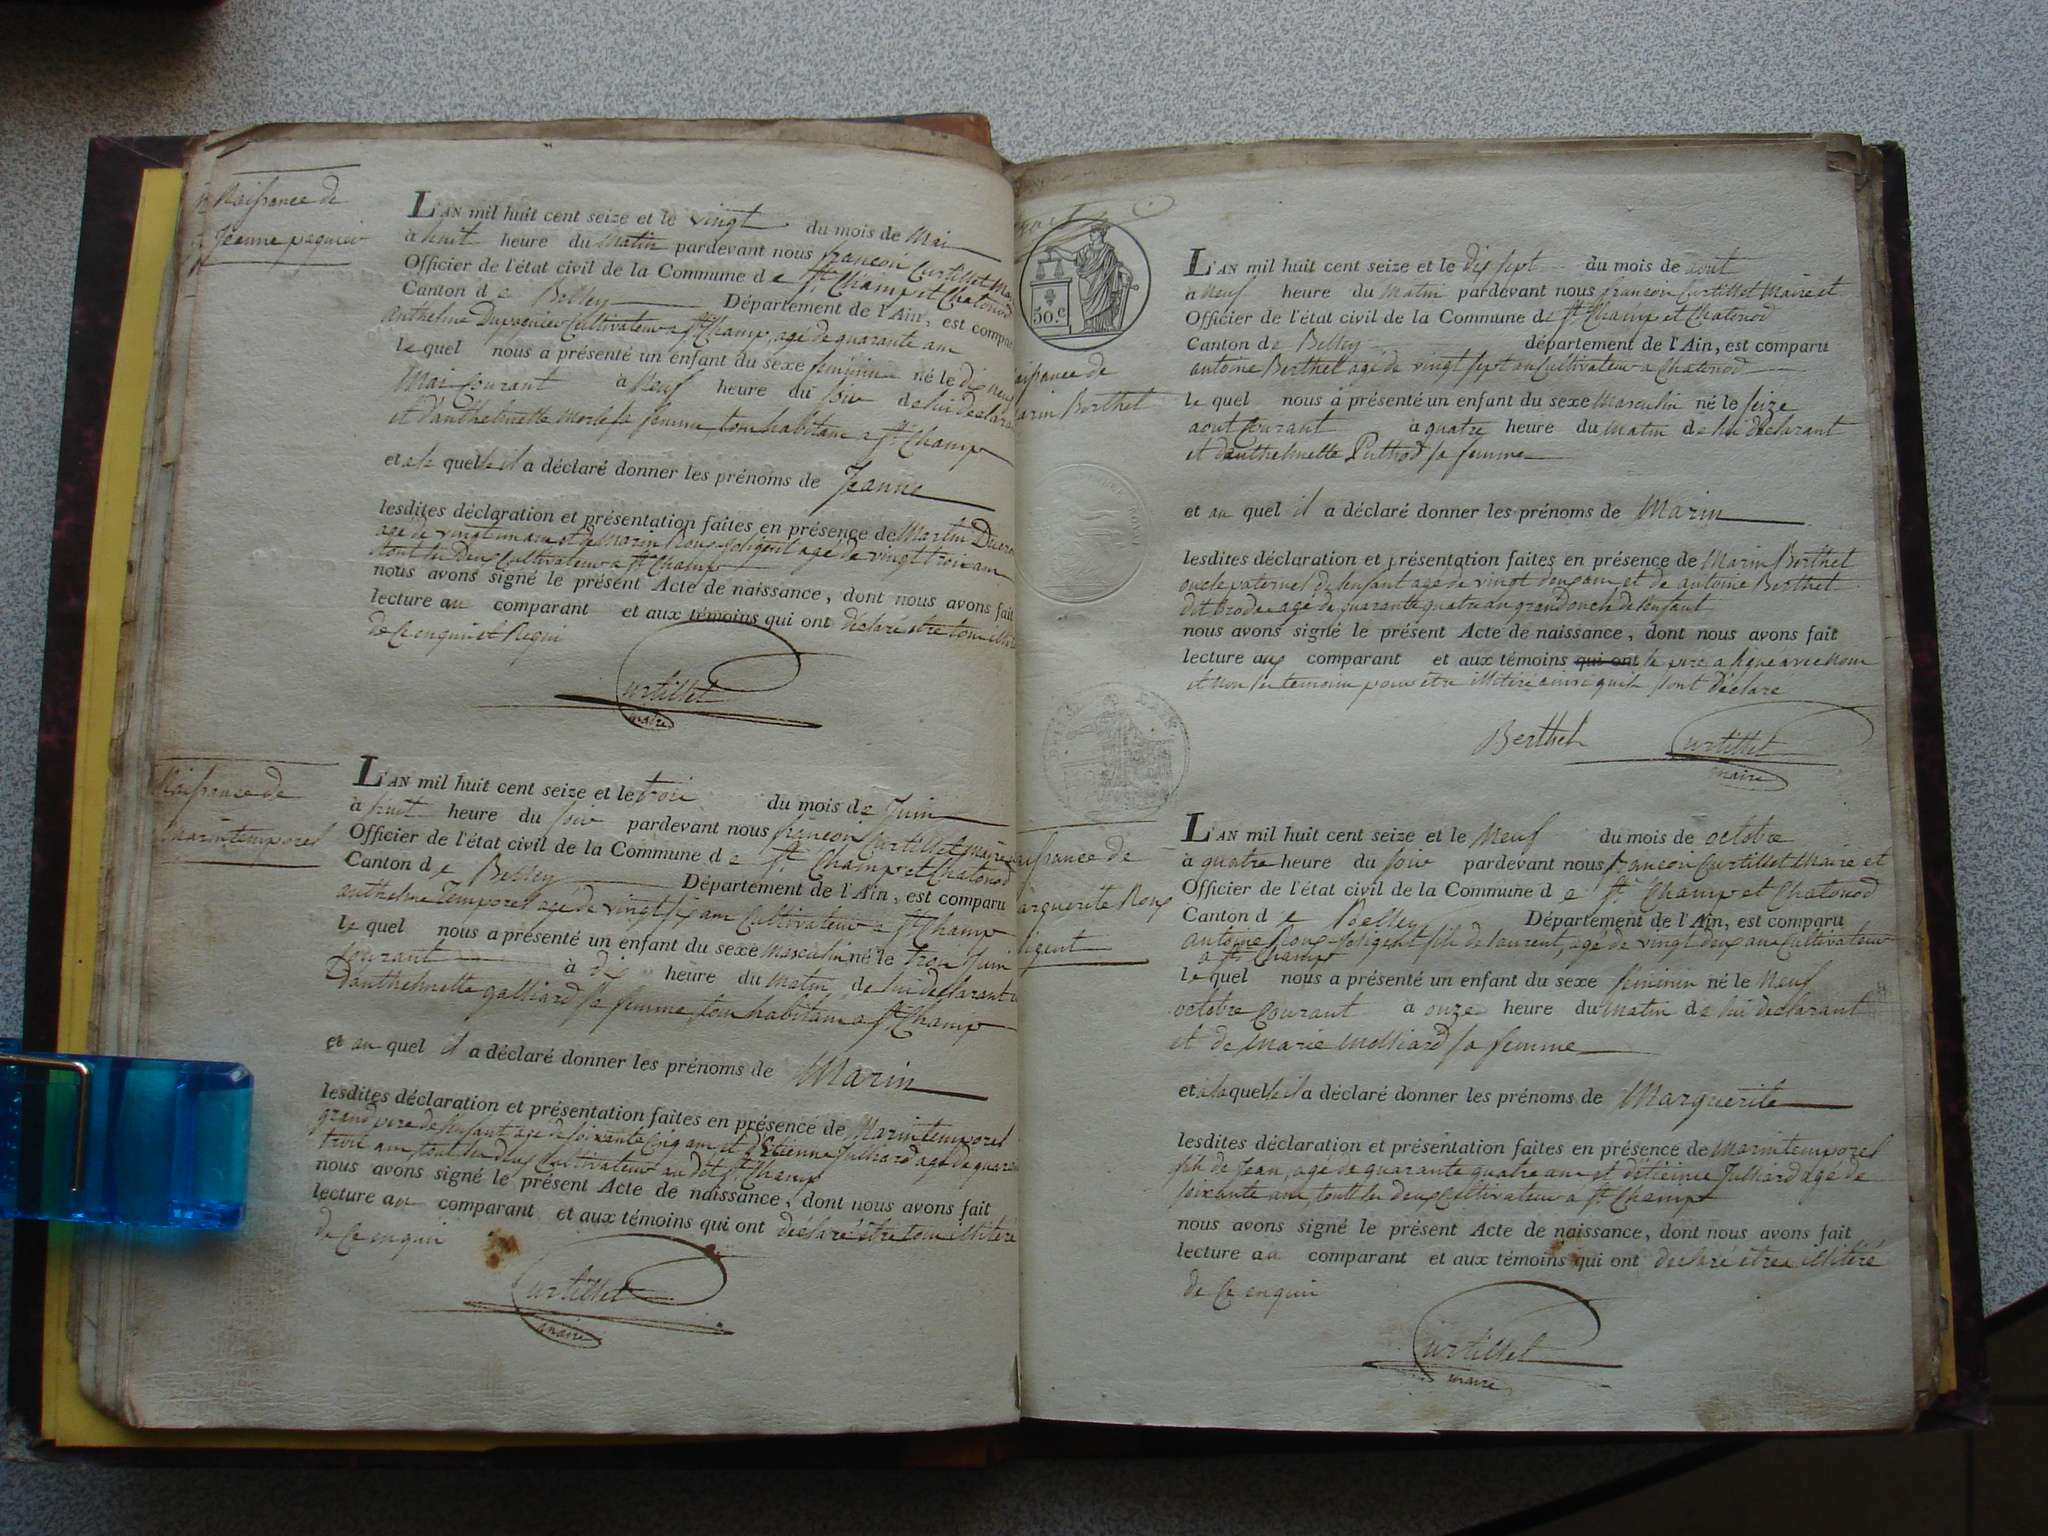 Naissance de
Jeanne pagnier
L'AN mil huit cent seize et le vingt du mois de Mai
à huit heure du Matin pardevant nous françois Curtillet
Officier de l'état civil de la Commune de St Champ et Chatonod
Canton de Belley Département de l'Ain, est comparu
anthelme Cultivateur a St Champ, agé de quarante ans
le quel nous a présenté un enfant du sexe feminin né le dix neuf
Mai Courant à Neuf heure du soir de lui declarant
et d'anthelmette sa femme, tous habitans a St Champ
et a la quelle il a déclaré donner les prénoms de Jeanne
lesdites déclaration et présentation faites en présence de Martin
agé de vingt un ans et de Marin Roux-soligent agé de vingt trois ans
tout les Deux Cultivateurs a St Champ
nous avons signé le présent Acte de naissance, dont nous avons fait
lecture au comparant et aux témoins qui ont declaré etre tous
de ce enquis et Requi
Curtillet
maire
Naissance de
Marin temporel
L'AN mil huit cent seize et le trois du mois de Juin
à huit heure du soir pardevant nous françois Curtillet Maire
Officier de l'état civil de la Commune de St Champ et Chatonod
Canton de Belley Département de l'Ain, est comparu
anthelme Temporel agé de vingt six ans Cultivateur a St Champ
le quel nous a présenté un enfant du sexe masculin né le trois Juin
Courant à dix heure du matin de lui declarant
D'anthelmette galliard sa femme, tous habitans a St Champ
et au quel il a déclaré donner les prénoms de Marin
lesdites déclaration et présentation faites en présence de Marin temporel
grand pere de l'enfant agé de soixante cinq ans et d'Etienne Julliard agé de
trois ans tout les deux Cultivateurs au dit St Champ
nous avons signé le présent Acte de naissance, dont nous avons fait
lecture au comparant et aux témoins qui ont déclaré etre tous illitéré
de ce enquis
Curtillet
maire
50.c
Naissance de
Marin Berthet
L'AN mil huit cent seize et le dix sept du mois de aout
à Neuf heure du matin pardevant nous françois Curtillet Maire et
Officier de l'état civil de la Commune de St Champ et Chatonod
Canton de Belley département de l'Ain, est comparu
antoine Berthet agé de vingt sept ans Cultivateur a Chatonod
le quel nous à présenté un enfant du sexe Masculin né le seize
aout Courant à quatre heure du matin de lui declarant
et d'anthelmette Puthod sa femme
et au quel il a déclaré donner les prénoms de Marin
lesdites déclaration et présentation faites en présence de Marin Berthet
oncle paternel de l'enfant agé de vingt deux ans et de antoine Berthet
dit agé de quarante quatre ans grand oncle de l'enfant
nous avons signé le présent Acte de naissance, dont nous avons fait
lecture aux comparant et aux témoins qui ont le pere a signé avec nous
et non les temoins pour etre illitéré ainsi qu'ils l'ont déclaré
Berthet Curtillet
maire
Naissance de
Marguerite Roux
soligent
L'AN mil huit cent seize et le Neuf du mois de octobre
à quatre heure du soir pardevant nous françois Curtillet Maire et
Officier de l'état civil de la Commune de St Champ et Chatonod
Canton de Belley Département de l'Ain, est comparu
antoine Roux-soligent fils de laurent, agé de vingt deux ans Cultivateur
a St Champ
le quel nous a présenté un enfant du sexe feminin né le Neuf
octobre Courant à onze heure du matin de lui declarant
et de Marie Molliard sa femme
et a la quelle il a déclaré donner les prénoms de Marguerite
lesdites déclaration et présentation faites en présence de Marin temporel
fils de Jean, agé de quarante quatre ans et d'etienne Julliard agé de
soixante ans, tout les deux Cultivateurs a St Champ
nous avons signé le présent Acte de naissance, dont nous avons fait
lecture au comparant et aux témoins qui ont declaré etre illitéré
de ce enquis
Curtillet
maire